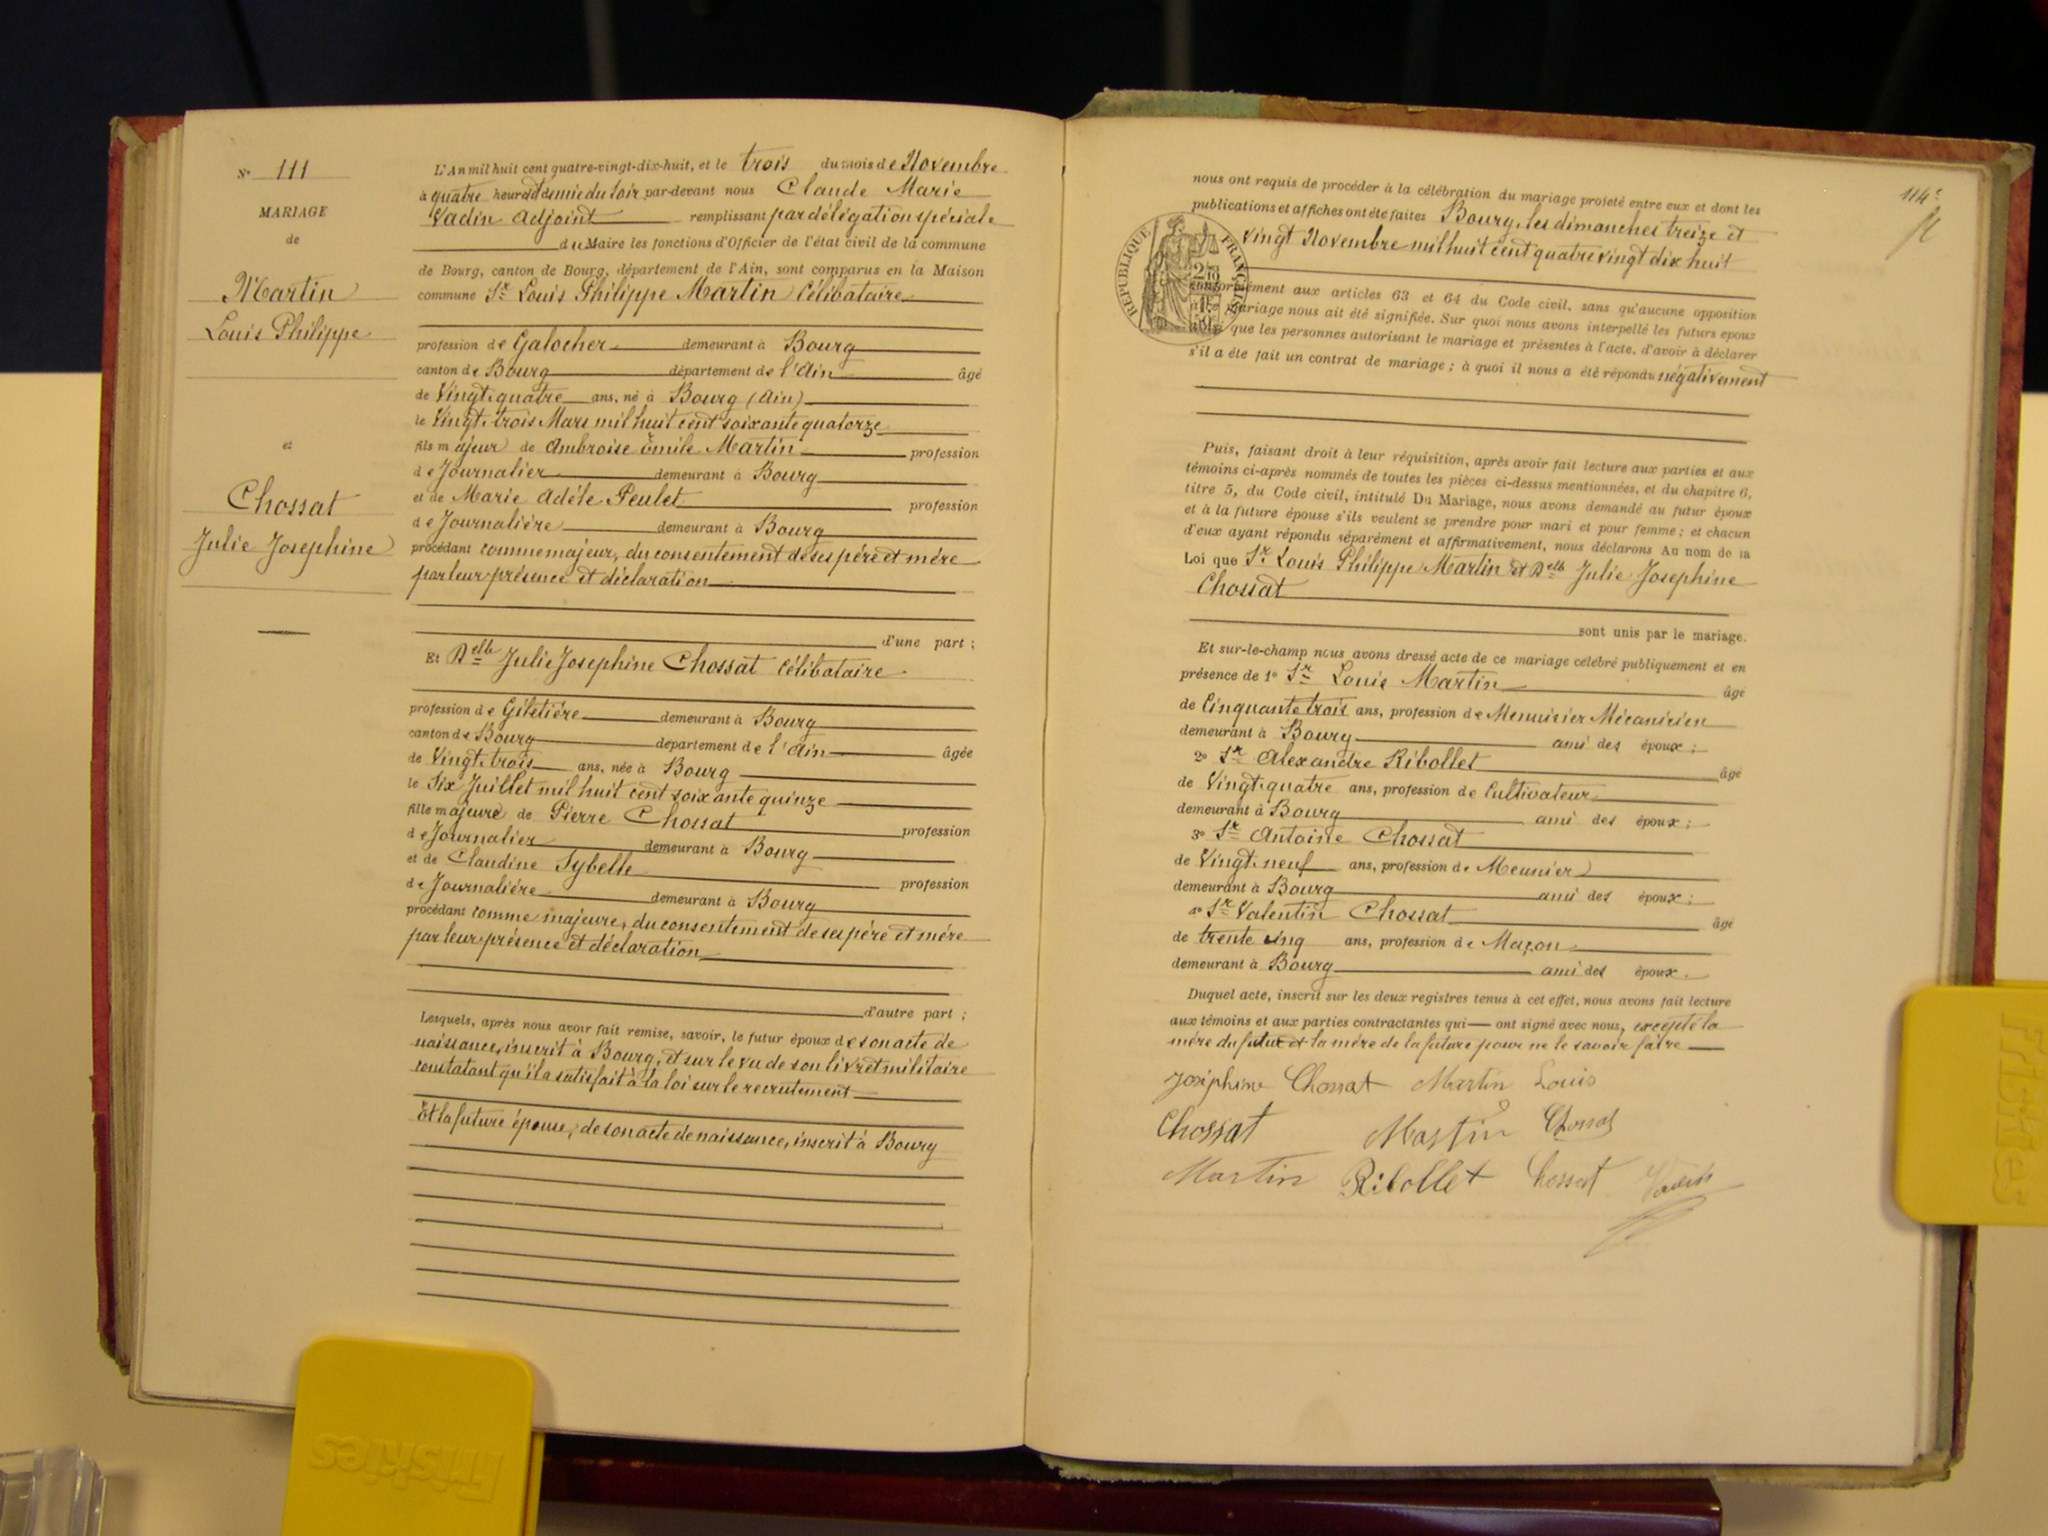 N° 111
MARIAGE
de
Martin
Louis Philippe
et
Chossat
Julie Josephine
L'An mil huit cent quatre-vingt-dix-huit, et le trois du mois de Novembre
à quatre heures et demie du soir par-devant nous Claude Marie
Vadin adjoint remplissant par délégation spéciale
du Maire les fonctions d'Officier de l'état civil de la commune
de Bourg, canton de Bourg, département de l'Ain, sont comparus en la Maison
commune Sr Louis Philippe Martin Célibataire
profession de Galocher demeurant à Bourg
canton de Bourg département de l'Ain âgé
de Vingt-quatre ans, né à Bourg (Ain)
le Vingt-trois Mars mil huit cent soixante quatorze
fils majeur de Ambroise Émile Martin profession
de Journalier demeurant à Bourg
et de Marie Adèle Peulet profession
de Journalière demeurant à Bourg
procédant comme majeur, du consentement de ses père et mère
par leur présence et déclaration
d'une part ;
Et Delle Julie Josephine Chossat Célibataire
profession de Giletière demeurant à Bourg
canton de Bourg département de l'Ain âgée
de Vingt-trois ans, née à Bourg
le Six Juillet mil huit cent soixante quinze
fille majeure de Pierre Chossat profession
de Journalier demeurant à Bourg
et de Claudine Sybelle profession
de Journalière demeurant à Bourg
procédant comme majeure, du consentement de ses père et mère
par leur présence et déclaration
d'autre part ;
Lesquels, après nous avoir fait remise, savoir, le futur époux de son acte de
naissance, inscrit à Bourg, et sur le vu de son livret militaire
constatant qu'il a satisfait à la loi sur le recrutement
Et la future épouse, de son acte de naissance, inscrit à Bourg
114e
nous ont requis de procéder à la célébration du mariage projeté entre eux et dont les
publications et affiches ont été faites Bourg, les dimanches treize et
vingt Novembre mil huit cent quatre vingt dix huit
RÉPUBLIQUE FRANÇAISE
conformément aux articles 63 et 64 du Code civil, sans qu'aucune opposition
mariage nous ait été signifiée. Sur quoi nous avons interpellé les futurs époux
que les personnes autorisant le mariage et présentes à l'acte, d'avoir à déclarer
s'il a été fait un contrat de mariage ; à quoi il nous a été répondu négativement
Puis, faisant droit à leur réquisition, après avoir fait lecture aux parties et aux
témoins ci-après nommés de toutes les pièces ci-dessus mentionnées, et du chapitre 6,
titre 5, du Code civil, intitulé Du Mariage, nous avons demandé au futur époux
et à la future épouse s'ils veulent se prendre pour mari et pour femme ; et chacun
d'eux ayant répondu séparément et affirmativement, nous déclarons Au nom de la
Loi que Sr Louis Philippe Martin et Delle Julie Josephine
Chossat
sont unis par le mariage.
Et sur-le-champ nous avons dressé acte de ce mariage célébré publiquement et en
présence de 1° Sr Louis Martin âgé
de Cinquante trois ans, profession de Menuisier Mécanicien
demeurant à Bourg ami des époux ;
2° Sr Alexandre Ribollet âgé
de Vingt-quatre ans, profession de Cultivateur
demeurant à Bourg ami des époux ;
3° Sr Antoine Chossat
de Vingt-neuf ans, profession de Meunier
demeurant à Bourg ami des époux ;
4° Sr Valentin Chossat âgé
de trente cinq ans, profession de Maçon
demeurant à Bourg ami des époux.
Duquel acte, inscrit sur les deux registres tenus à cet effet, nous avons fait lecture
aux témoins et aux parties contractantes qui ont signé avec nous, excepté la
mère du futur et la mère de la future pour ne le savoir faire
Joséphine Chossat Martin Louis
Chossat Martin Chossat
Martin Ribollet Chossat Vadin
Friskies
Friskies